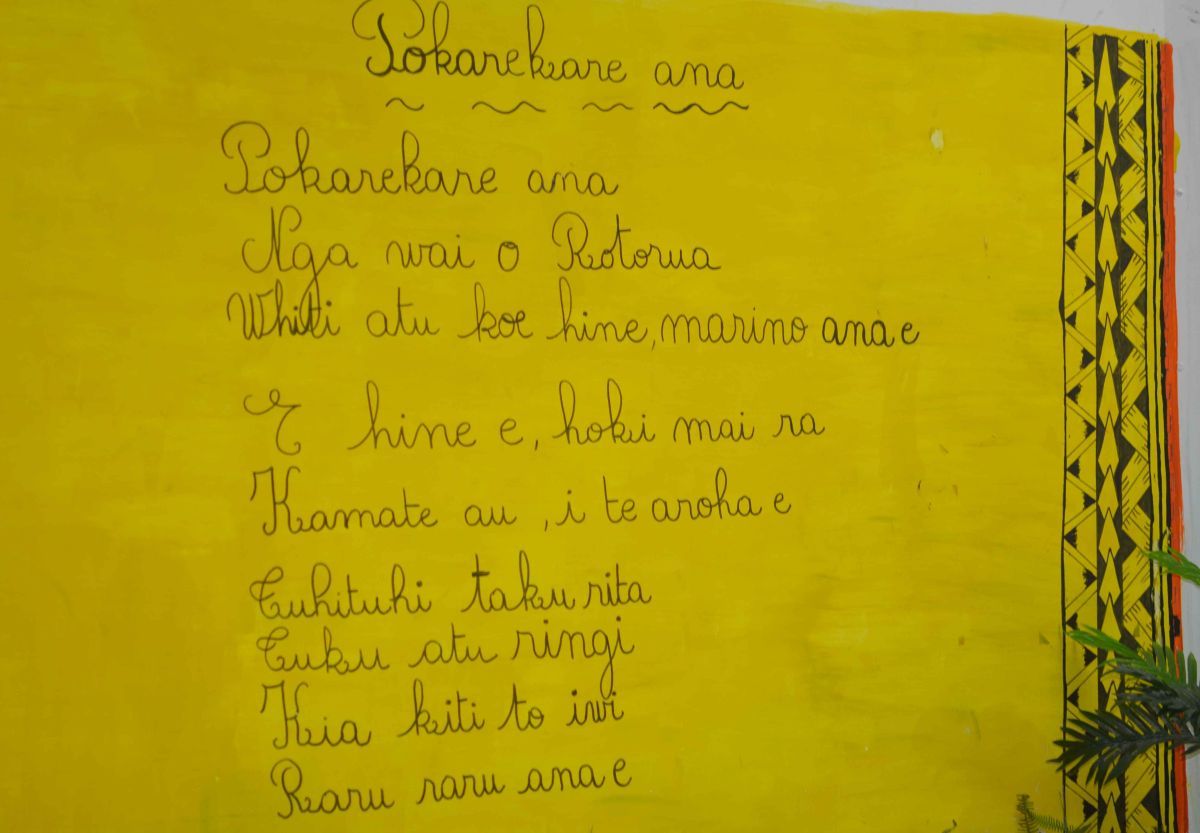 Pokarekare ana
Pokarekare ana
Nga wai o Rotorua
Whiti atu koe hine, marino ana e
E hine e, hoki mai ra
Kamate au , i te aroha e
Tuhituhi taku rita
Tuku atu ringi
Kia kiti to iwi
Raru raru ana e